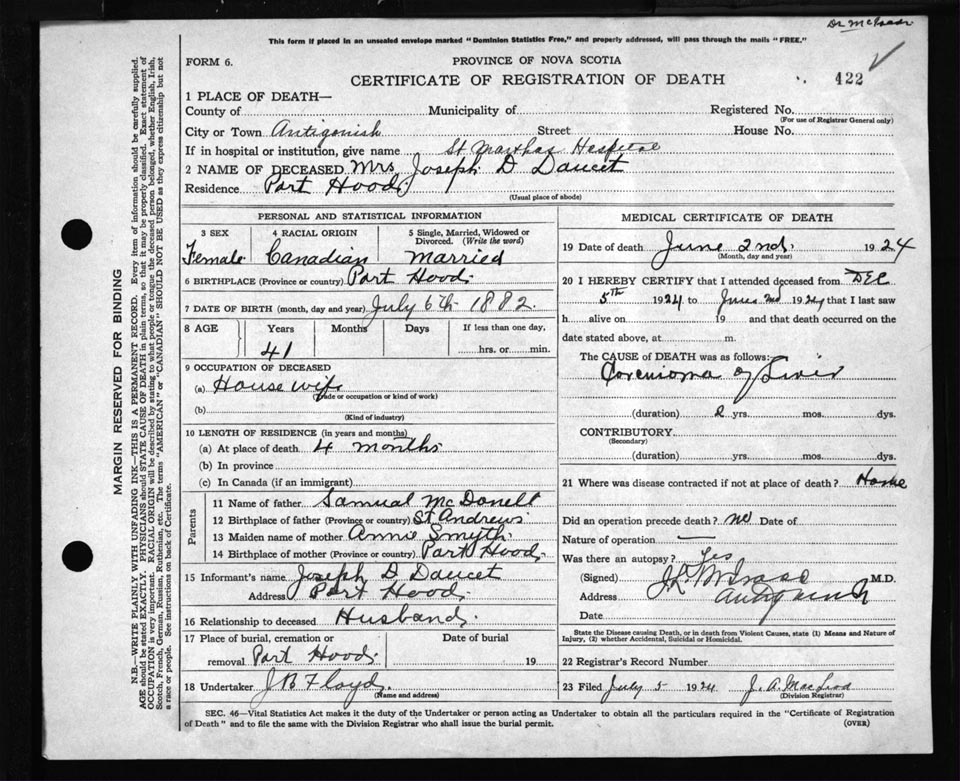 Dr McIsaac
This form if placed in an unsealed envelope marked "Dominion Statistics Free," and properly addressed, will pass through the mails "FREE."
FORM 6.
PROVINCE OF NOVA SCOTIA
CERTIFICATE OF REGISTRATION OF DEATH
422
1 PLACE OF DEATH—
County of Municipality of Registered No.
(For use of Registrar General only)
City or Town Antigonish Street House No.
If in hospital or institution, give name St Marthas Hospital
2 NAME OF DECEASED Mrs Joseph D Daucet
Residence Part Hood
(Usual place of abode)
PERSONAL AND STATISTICAL INFORMATION
3 SEX 4 RACIAL ORIGIN 5 Single, Married, Widowed or
Divorced. (Write the word)
Female Canadian Married
6 BIRTHPLACE (Province or country) Part Hood
7 DATE OF BIRTH (month, day and year) July 6th 1882
8 AGE Years Months Days If less than one day,
41 hrs. or min.
9 OCCUPATION OF DECEASED
(a) House wife
(Trade or occupation or kind of work)
(b)
(Kind of industry)
10 LENGTH OF RESIDENCE (in years and months)
(a) At place of death 4 months
(b) In province
(c) In Canada (if an immigrant)
Parents
11 Name of father Samual McDonell
12 Birthplace of father (Province or country) St Andrews
13 Maiden name of mother Annie Smyth
14 Birthplace of mother (Province or country) Part Hood
15 Informant's name Joseph D Daucet
Address Part Hood
16 Relationship to deceased Husband
17 Place of burial, cremation or Date of burial
removal Part Hood 19
18 Undertaker J B Floyd
(Name and address)
MEDICAL CERTIFICATE OF DEATH
19 Date of death June 2nd 1924
(Month, day and year)
20 I HEREBY CERTIFY that I attended deceased from Dec
5th 1924 to June 2nd 1924 that I last saw
h alive on 19 and that death occurred on the
date stated above, at m.
The CAUSE OF DEATH was as follows:
Corcnioma of Liver
(duration) 2 yrs. mos. dys.
CONTRIBUTORY
(Secondary)
(duration) yrs. mos. dys.
21 Where was disease contracted if not at place of death? Home
Did an operation precede death? no Date of
Nature of operation —
Was there an autopsy? Yes
(Signed) McIsaac M.D.
Address Antigonish
Date
State the Disease causing Death, or in death from Violent Causes, state (1) Means and Nature of
Injury, (2) whether Accidental, Suicidal or Homicidal.
22 Registrar's Record Number
23 Filed July 5 1924 J. A. MacLeod
(Division Registrar)
SEC. 46—Vital Statistics Act makes it the duty of the Undertaker or person acting as Undertaker to obtain all the particulars required in the "Certificate of Registration
of Death" and to file the same with the Division Registrar who shall issue the burial permit.
(OVER)
MARGIN RESERVED FOR BINDING
N.B.—WRITE PLAINLY WITH UNFADING INK—THIS IS A PERMANENT RECORD. Every item of information should be carefully supplied.
AGE should be stated EXACTLY. PHYSICIANS should STATE CAUSE OF DEATH in plain terms, so that it may be properly classified. Exact statement of
OCCUPATION is very important. RACIAL ORIGIN will be described by stating to what people or tongue the deceased person belonged, whether English, Irish,
Scotch, French, German, Russian, Ruthenian, etc. The terms "AMERICAN" or "CANADIAN" SHOULD NOT BE USED as they express citizenship but not
a race or people. See instructions on back of Certificate.